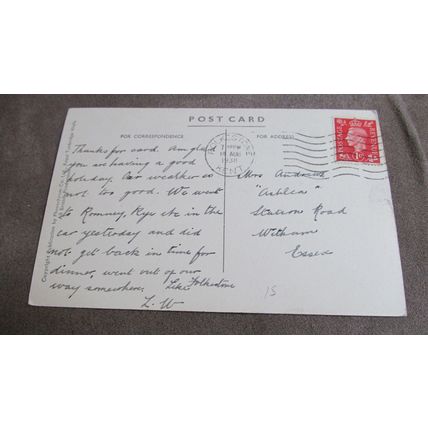 POST CARD
FOR CORRESPONDENCE
FOR ADDRESS
Thanks for card. Am glad
you are having a good
holiday. Our weather is
not too good. We went
to Romney, Rye etc in the
car yesterday and did
not get back in time for
dinner, went out of our
way somewhere. Like Folkestone
L. W
KENT
AUG
1938
POSTAGE
REVENUE
Mrs Andrews
Station Road
Witham
Essex
15